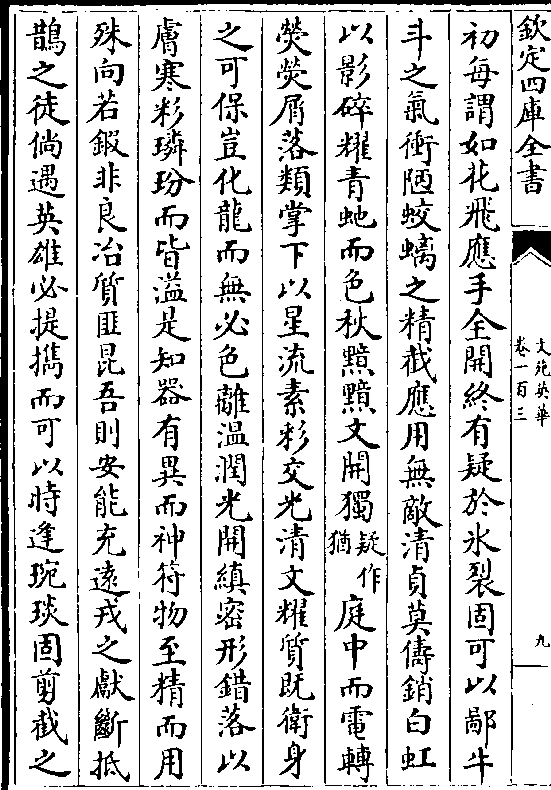 欽定四庫全書
文苑英華
卷一百三
九
初每謂如花飛應手全開終有疑於氷裂固可以鄙牛
斗之氣衝陋蛟螭之精㦸應用無敵清貞莫儔銷白虹
以影碎耀青虵而色秋黯黯文開獨疑作猶庭中而電轉
熒熒屑落類掌下以星流素彩交光清文耀質既衛身
之可保豈化龍而無必色離溫潤光開縝密形錯落以
膚寒彩璘玢而皆溢是知器有異而神符物至精而用
殊向若鍜非良冶質匪昆吾則安能充遠戎之獻斷抵
鵲之徒倘遇英雄必提擕而可以時逢琬琰固剪截之